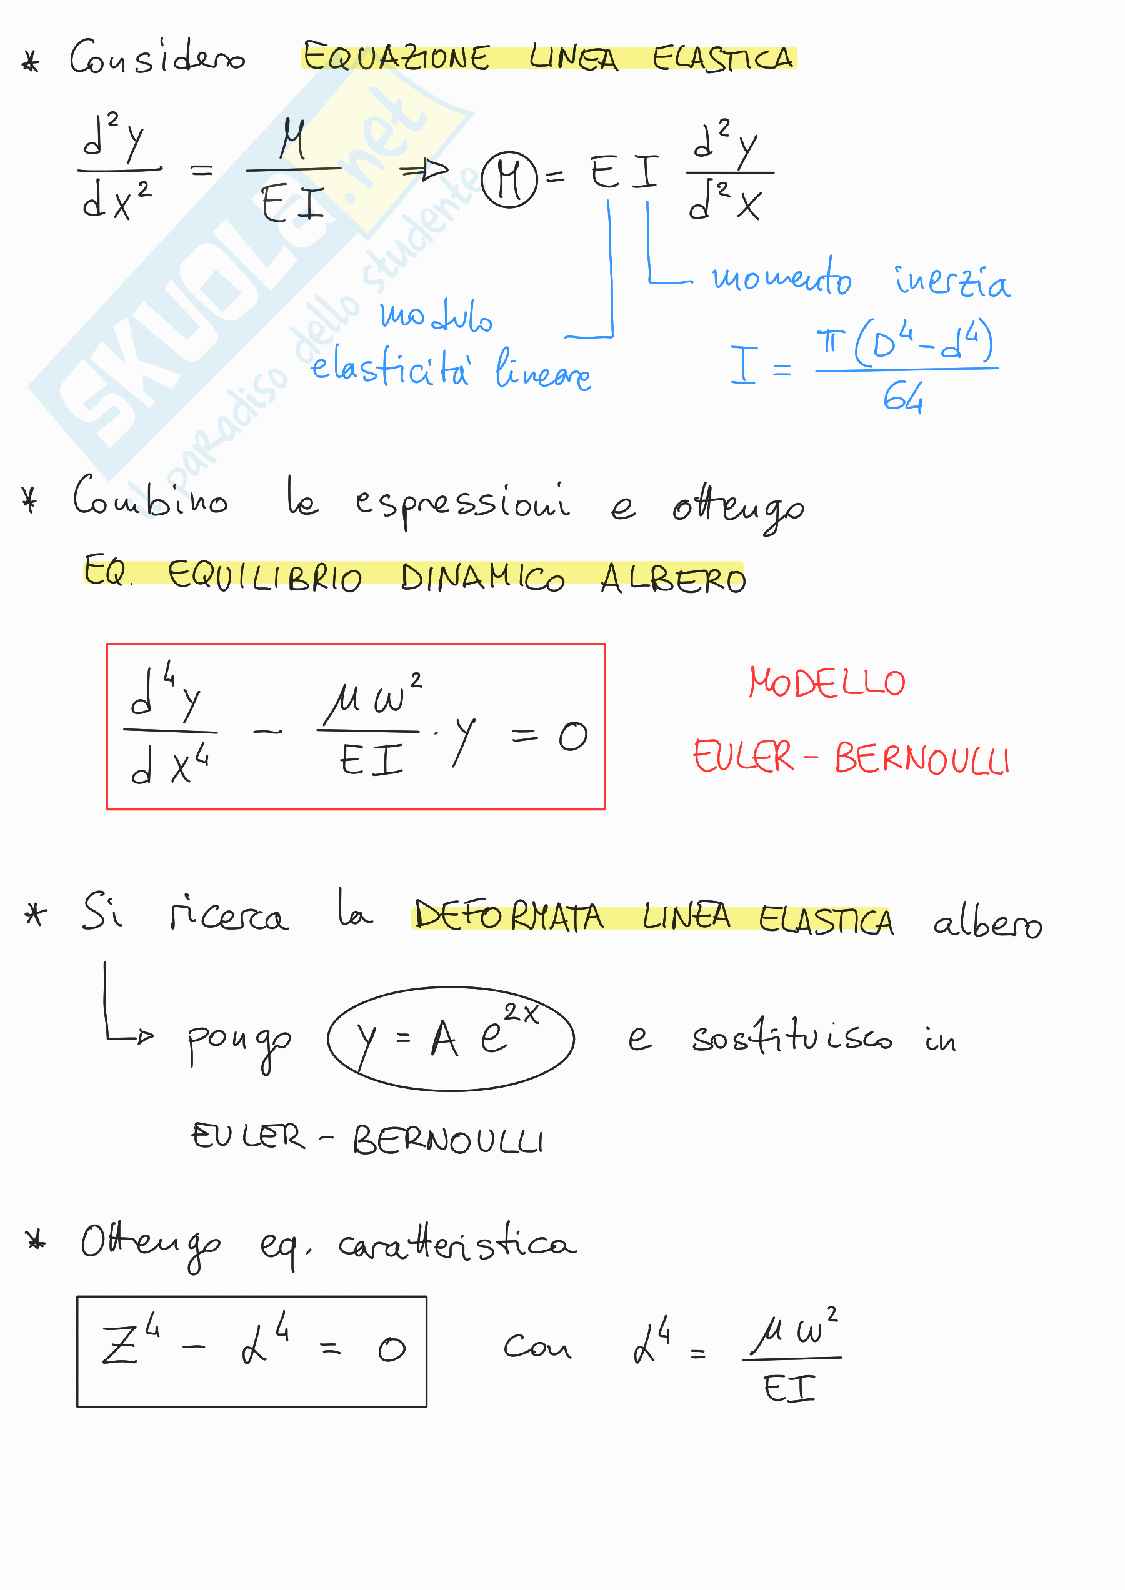 * Considero EQUAZIONE LINEA ELASTICA
d²y/dx² = M/EI ⇒ M = EI d²y/d²x
momento inerzia
modulo
elasticità lineare
I = π(D⁴-d⁴)/64
* Combino le espressioni e ottengo
EQ. EQUILIBRIO DINAMICO ALBERO
d⁴y/dx⁴ - μω²/EI · y = 0
MODELLO
EULER - BERNOULLI
* Si ricerca la DEFORMATA LINEA ELASTICA albero
pongo y = A e^{zx} e sostituisco in
EULER - BERNOULLI
* Ottengo eq. caratteristica
Z⁴ - α⁴ = 0 con α⁴ = μω²/EI
SKUOLA.net
il paradiso dello studente